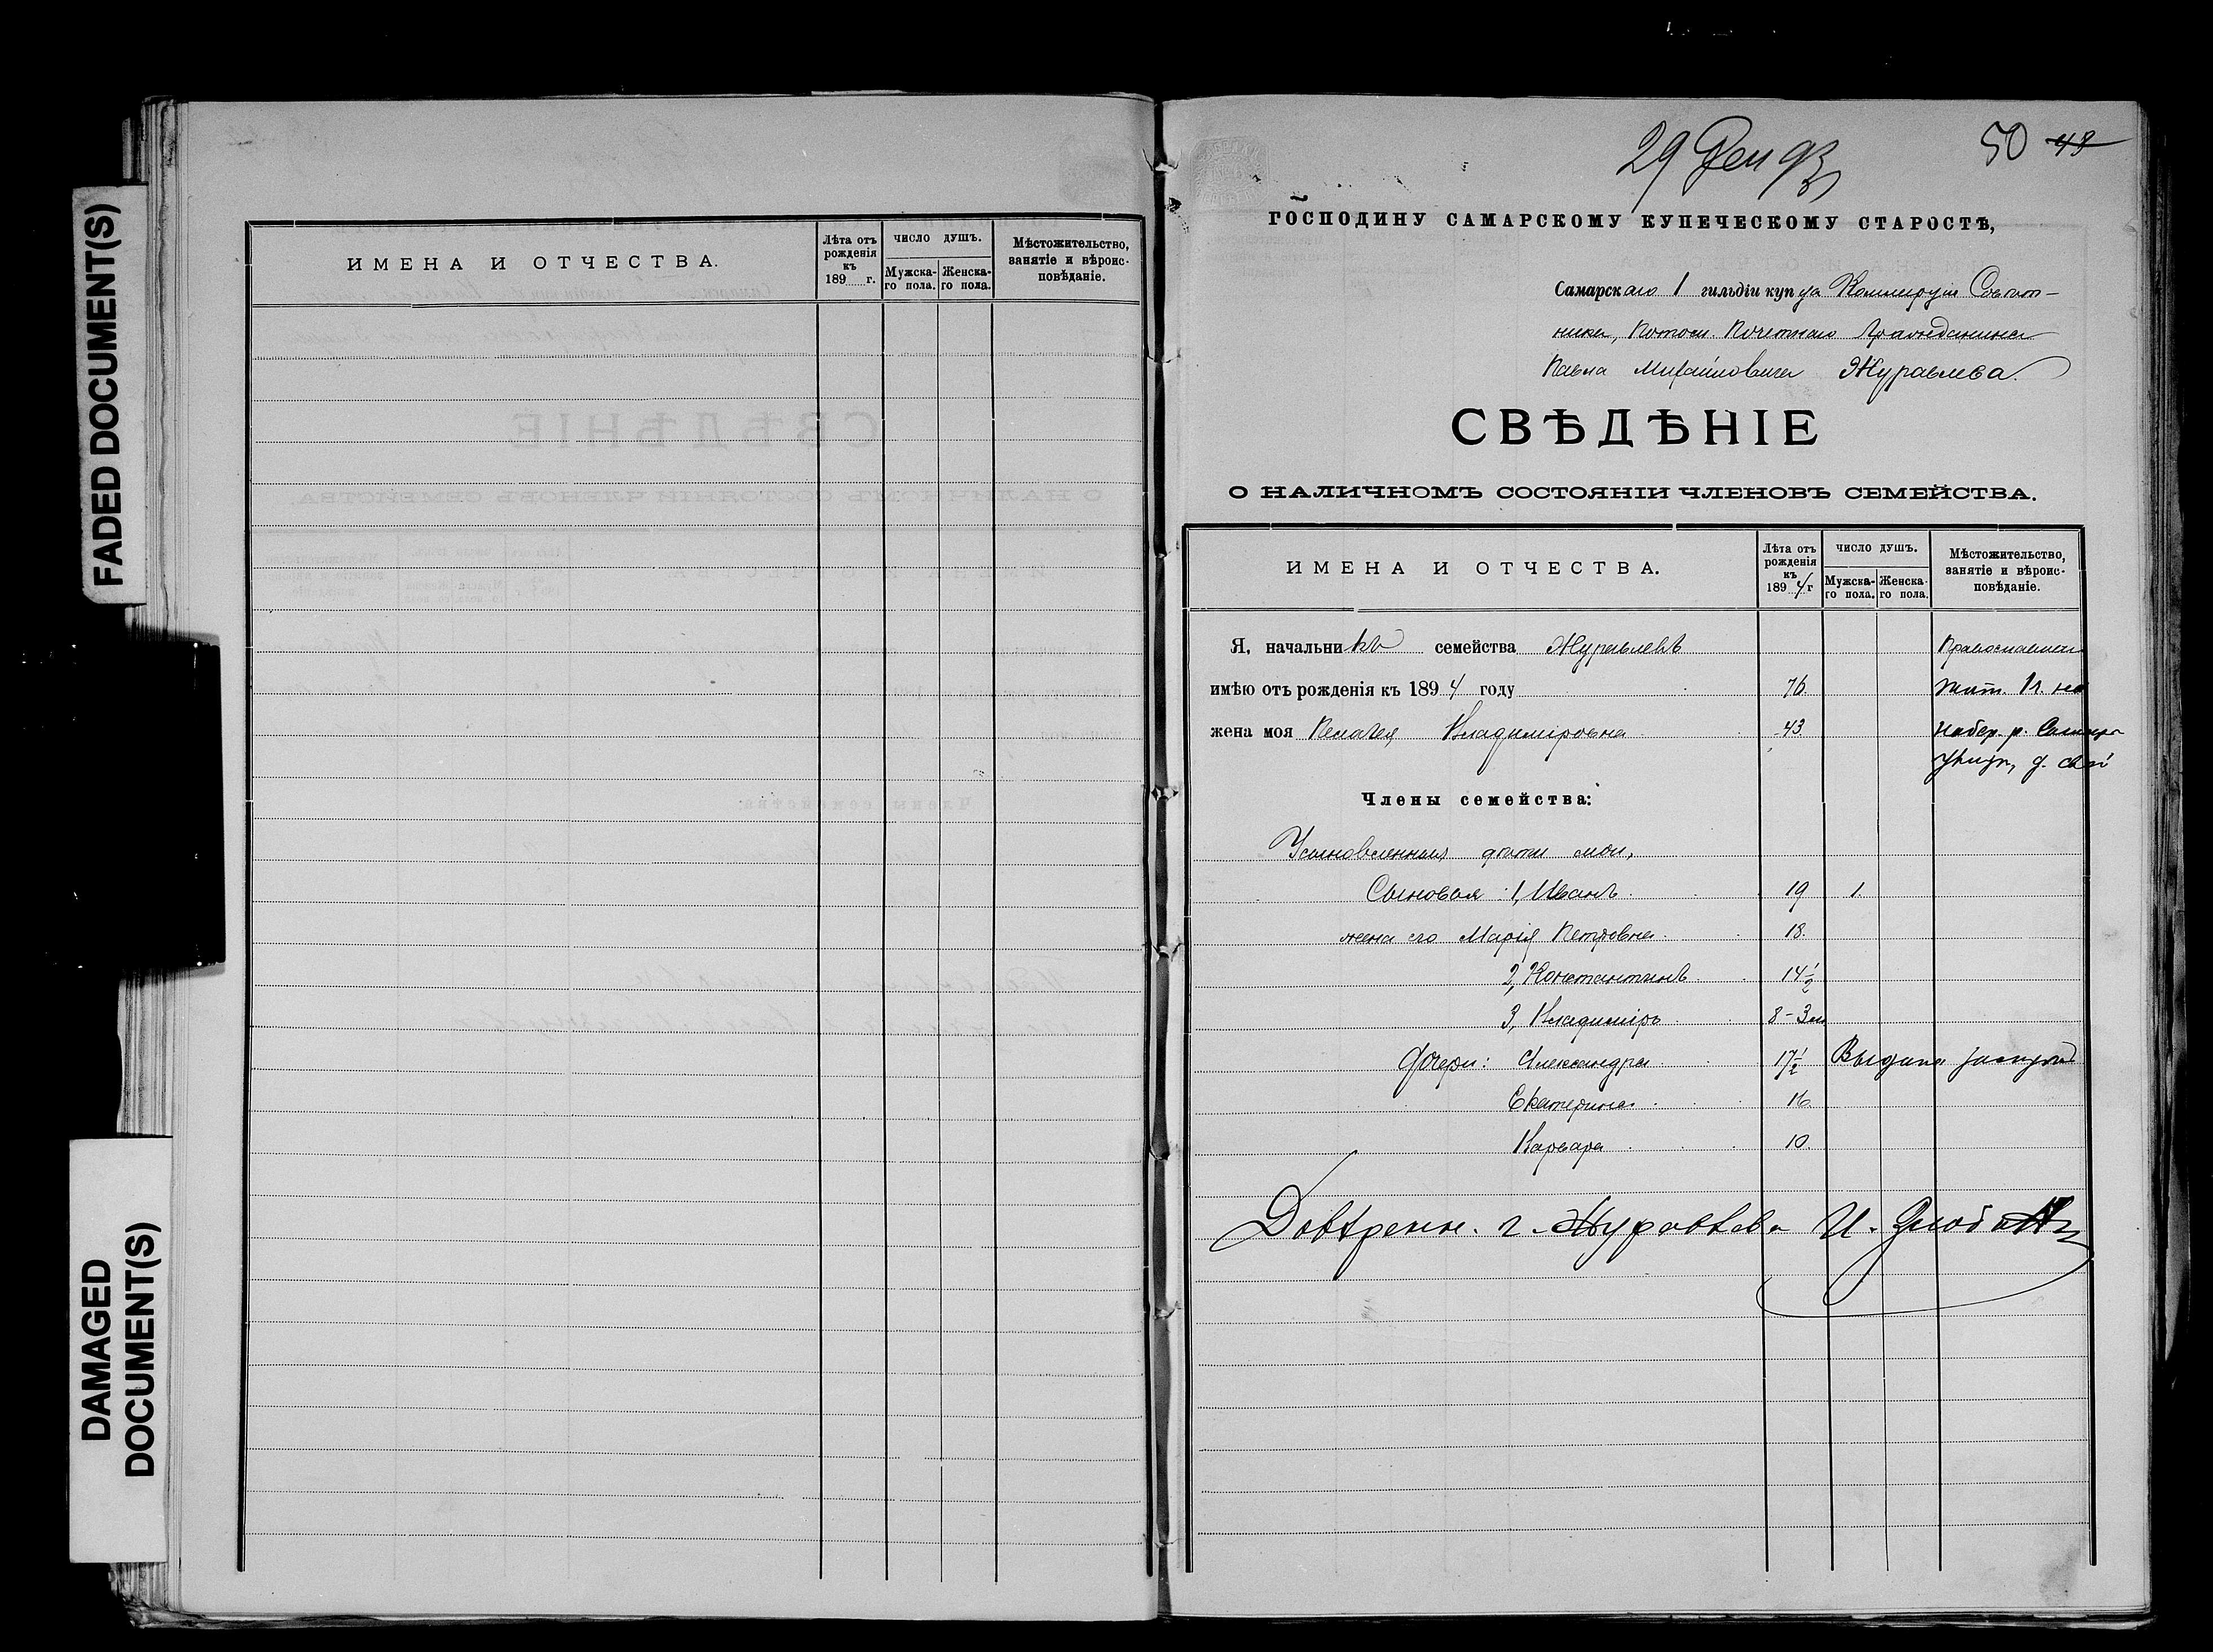 FADED DOCUMENT(S)
DAMAGED DOCUMENT(S)
ИМЕНА И ОТЧЕСТВА.
Лѣта отъ рожденія къ 189 г.
ЧИСЛО ДУШЪ.
Мужска- го пола.
Женска- го пола.
Мѣстожительство, занятіе и вѣроис- повѣданіе.
29 Дек 93
50 48
ГОСПОДИНУ САМАРСКОМУ КУПЕЧЕСКОМУ СТАРОСТѢ,
Самарскаго 1 гильдіи купца Коммерціи Совѣт-
ника, Потом. Почетнаго Гражданина
Павла Михайловича Журавлева.
СВѢДѢНІЕ
О НАЛИЧНОМЪ СОСТОЯНІИ ЧЛЕНОВЪ СЕМЕЙСТВА.
ИМЕНА И ОТЧЕСТВА.
Лѣта отъ рожденія къ 1894 г
ЧИСЛО ДУШЪ.
Мужска- го пола.
Женска- го пола.
Мѣстожительство, занятіе и вѣроис- повѣданіе.
Я, начальникъ семейства Журавлевъ
имѣю отъ рожденія къ 1894 году 76. Жит. 1 ч. на
жена моя Пелагея Владиміровна 43. набер. р. Самары
д. свой
Члены семейства:
Усыновленныя дѣти мои,
Сыновья: 1, Иванъ 19 1.
жена его Марія Петровна 18.
2, Константинъ 14 1/2
3, Владиміръ 8-3 м
Дочери: Александра 17 1/2 Выдана замужъ
Екатерина 16
Варвара 10.
Довѣренн. г. Журавлева И.